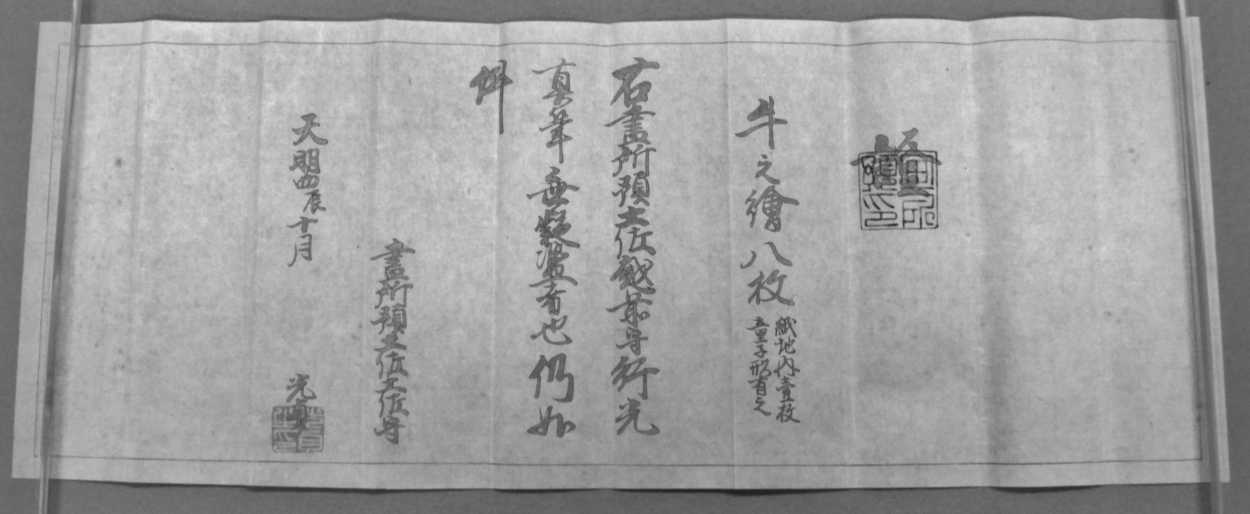 牛之繪八枚
紙地内壹枚
童子形有之
右畫所預土佐越前守行光
真筆無疑濫者也仍如
件
畫所預土佐土佐守
天明四辰十月 光貞